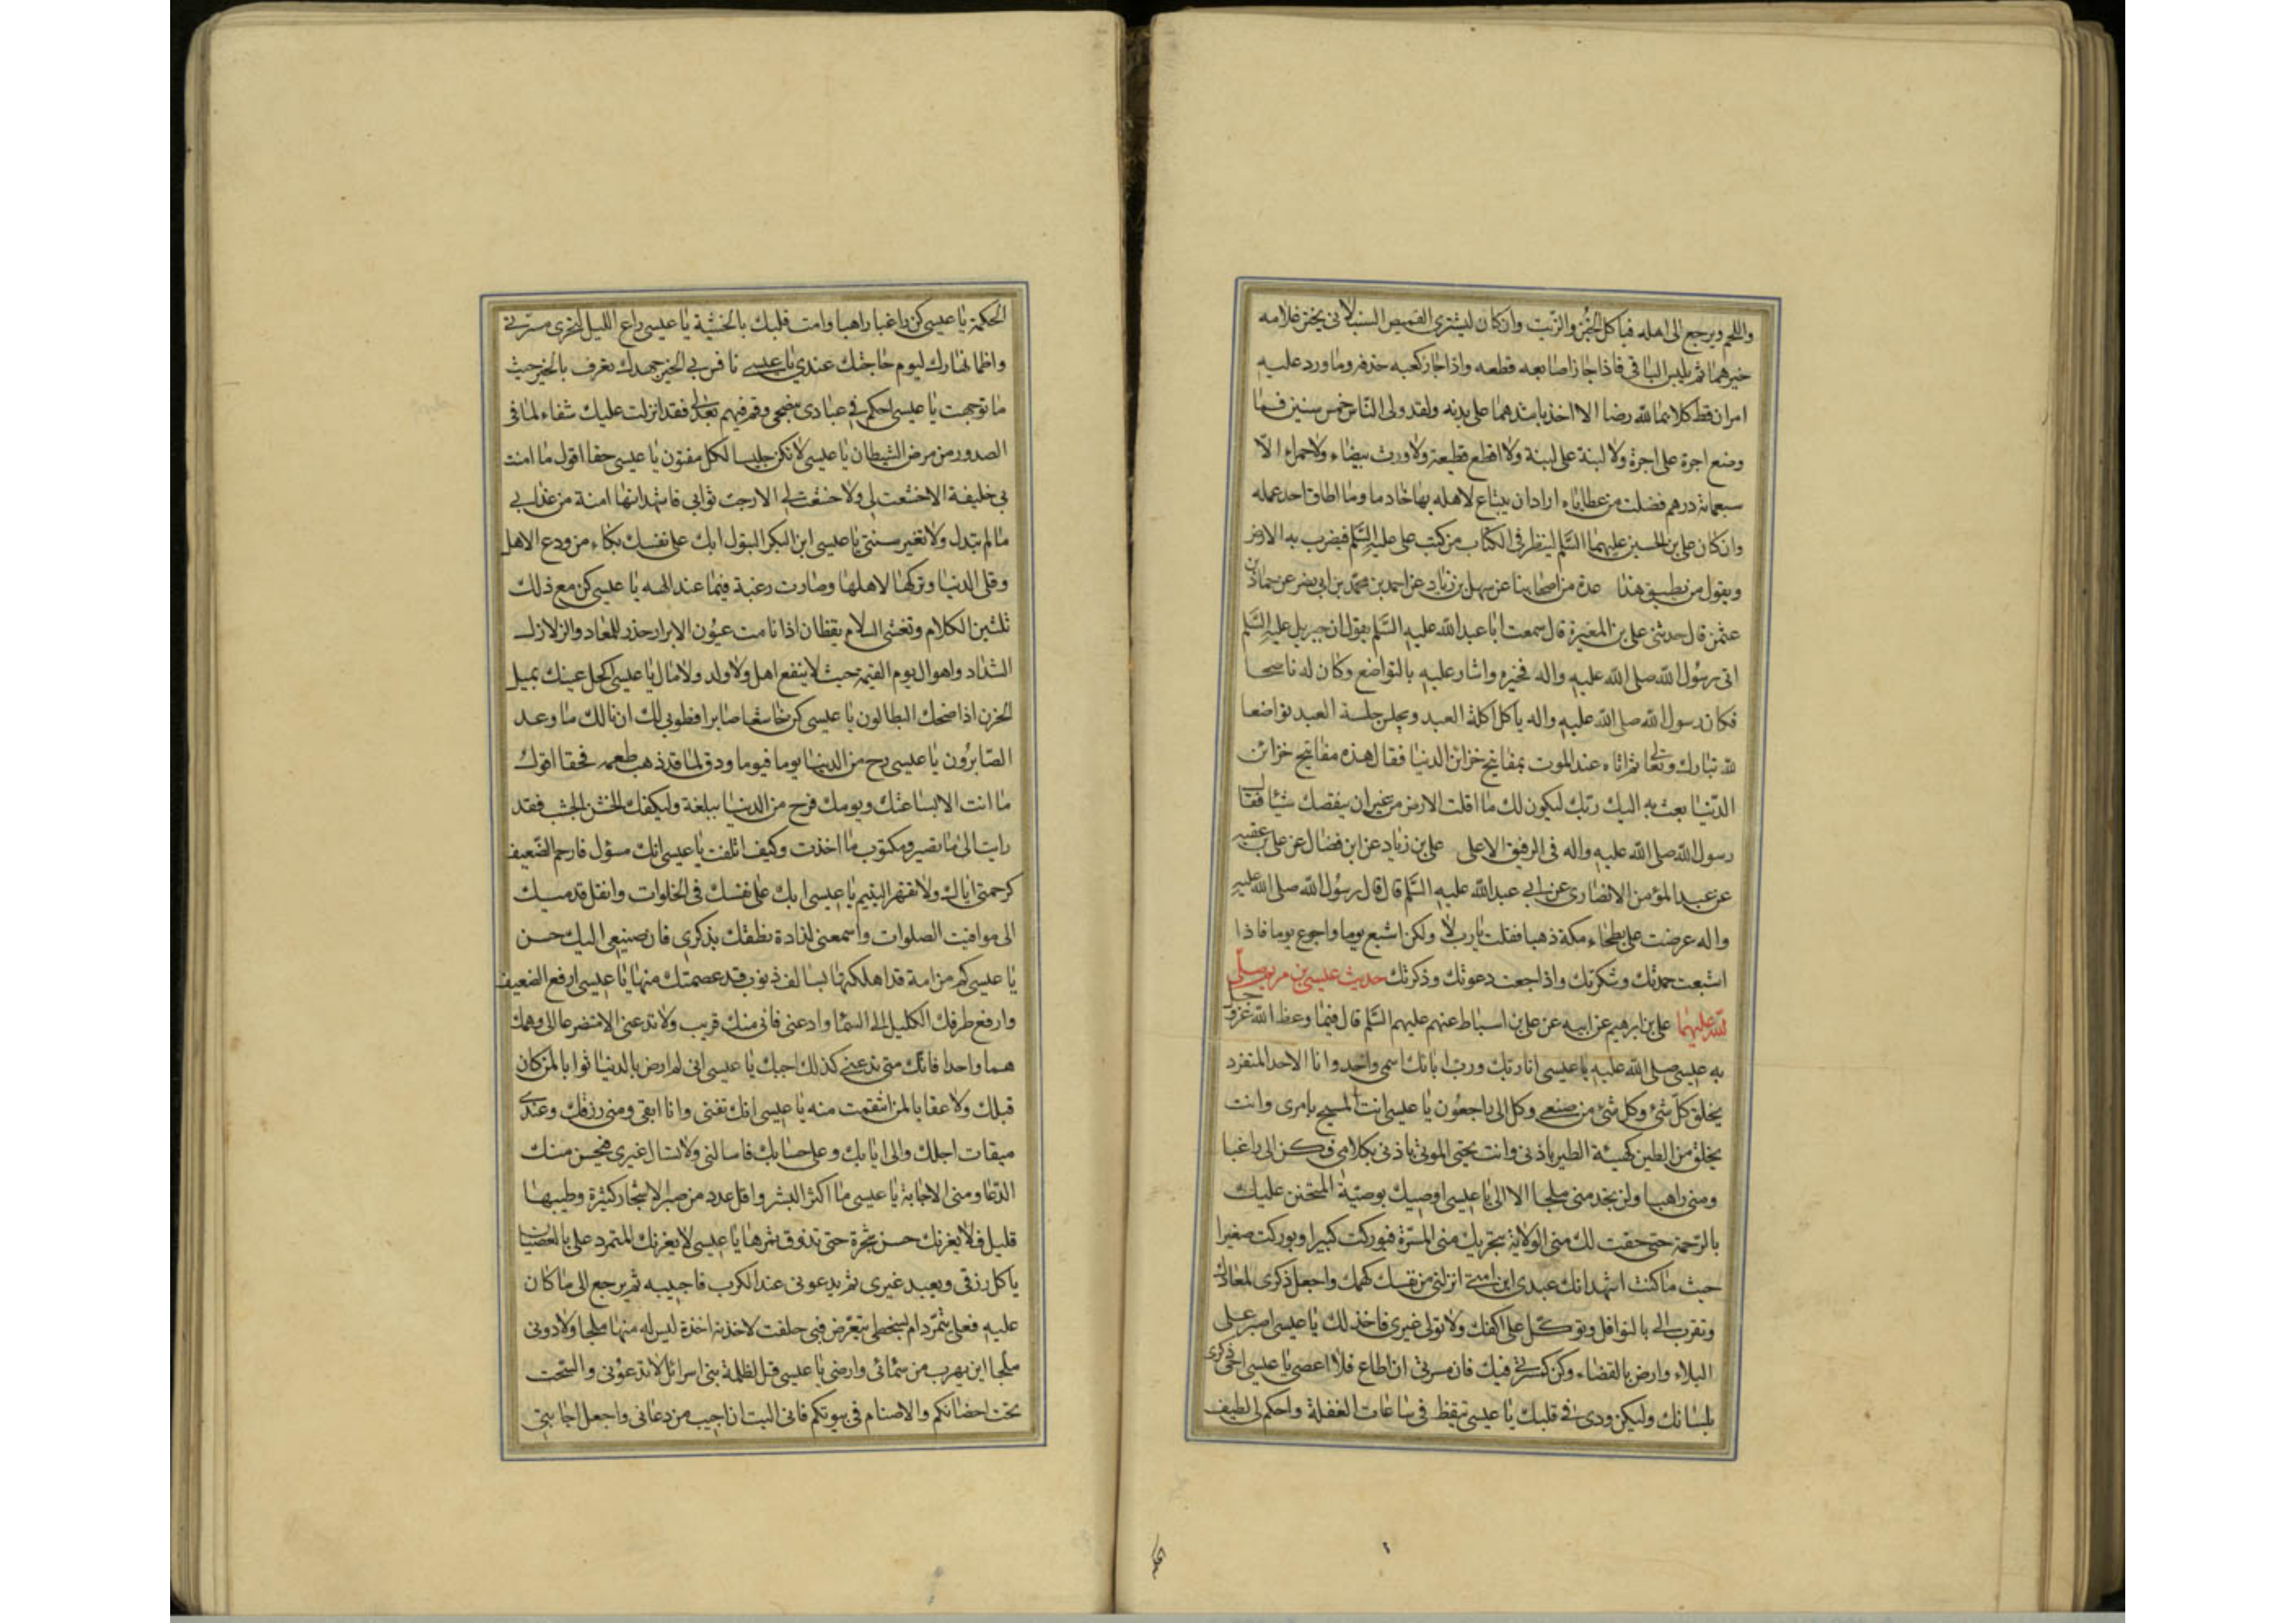 واللحم ويرجع الى اهله فياكل الخبز والزيت وان كان ليشترى القميص السنبلانى يخير غلامه
خيرهما ثم يلبس الباقى فاذا جاز اصابعه قطعه واذا جاز كعبه حذفه وما ورد عليه
امران قط كلاهما لله رضا الا اخذ باشدهما على بدنه ولقد ولى الناس خمس سنين فما
وضع اجرة على اجرة ولا لبنة على لبنة ولا اقطع قطيعة ولا اورث بيضاء ولا حمراء الا
سبعمائة درهم فضلت من عطاياه اراد ان يبتاع لاهله بها خادما وما اطاق احد عمله
وان كان على بن الحسين عليهما السلم لينظر فى الكتاب من كتب على عليه السلم فيضرب به الارض
ويقول من يطيق هذا عدة من اصحابنا عن سهل بن زياد عن احمد بن محمد بن ابى نصر عن حماد بن
عثمن قال حدثنى على بن المغيرة قال سمعت ابا عبد الله عليه السلم يقول ان جبرئيل عليه السلم
اتى رسول الله صلى الله عليه واله فخيره واشار عليه بالتواضع وكان له ناصحا
فكان رسول الله صلى الله عليه واله ياكل اكلة العبد ويجلس جلسة العبد تواضعا
لله تبارك وتعالى ثم اتاه عند الموت بمفاتيح خزائن الدنيا فقال هذه مفاتيح خزائن
الدنيا بعث به اليك ربك ليكون لك ما اقلت الارض من غير ان ينقصك شيئا فقال
رسول الله صلى الله عليه واله فى الرفيق الاعلى على بن زياد عن ابن فضال عن على بن عقبه
عن عبد المؤمن الانصارى عن ابى عبد الله عليه السلم قال قال رسول الله صلى الله عليه
واله عرضت على بطحاء مكة ذهبا فقلت يارب لا ولكن اشبع يوما واجوع يوما فاذا
اشبعت حمدتك وشكرتك واذا جعت دعوتك وذكرتك حديث عيسى بن مريم صلى
لله عليهما على بن ابرهيم عن ابيه عن على بن اسباط عنهم عليهم السلم قال فيما وعظ الله عز وجل
به عيسى صلى الله عليه يا عيسى انا ربك ورب ابائك اسمى واحد وانا الاحد المتفرد
بخلق كل شئ وكل شئ من صنعى وكل الى راجعون يا عيسى انت المسيح بامرى وانت
تخلق من الطين كهيئة الطير باذنى وانت تحيى الموتى باذنى بكلامى فكن الى راغبا
ومنى راهبا ولن تجد منى ملجا الا الى يا عيسى اوصيك بوصية المتحنن عليك
بالرحمة حتى حقت لك منى الولاية بتحريك منى المسرة فبوركت كبيرا وبوركت صغيرا
حيث ما كنت اشهد انك عبدى ابن امتى انزلنى من نفسك كهمك واجعل ذكرى لمعادك
وتقرب الى بالنوافل وتوكل على اكفك ولا تولى غيرى فاخذ لك يا عيسى اصبر على
البلاء وارض بالقضاء وكن كمسرتى فيك فان مسرتى ان اطاع فلا اعصى يا عيسى احى ذكرى
بلسانك وليكن ودى فى قلبك يا عيسى تيقظ فى ساعات الغفلة واحكم لى لطيف
الحكمة يا عيسى كن راغبا راهبا وامت قلبك بالخشية يا عيسى راع الليل لتحرى مسرتى
واظما نهارك ليوم حاجتك عندى يا عيسى نافس فى الخير جهدك تعرف بالخير حيث
ما توجهت يا عيسى احكم فى عبادى بنصحى وقم فيهم بعدلى فقد انزلت عليك شفاء لما فى
الصدور من مرض الشيطان يا عيسى لا تكن جليسا لكل مفتون يا عيسى حقا اقول ما امنت
بى خليقة الا خشعت لى ولا خشعت لى الا رجت ثوابى فاشهد انها امنة من عذابى
ما لم تبدل ولا تغير سنتى يا عيسى ابن البكر البتول ابك على نفسك بكاء من ودع الاهل
وقلى الدنيا وتركها لاهلها وصارت رغبة فيما عند الهه يا عيسى كن مع ذلك
تلين الكلام وتفشى السلام يقظان اذا نامت عيون الابرار حذر للمعاد والزلازل
الشداد واهوال يوم القيمة حيث لا ينفع اهل ولا ولد ولا مال يا عيسى اكحل عينك بميل
الحزن اذا ضحك البطالون يا عيسى كن خاشعا صابرا فطوبى لك ان نالك ما وعد
الصابرون يا عيسى رح من الدنيا يوما فيوما وذق لما قد ذهب طعمه فحقا اقول
ما انت الا بساعتك ويومك فرح من الدنيا ببلغة وليكفك الخشن الجشب فقد
رايت الى ما تصير ومكتوب ما اخذت وكيف اتلفت يا عيسى انك مسؤل فارحم الضعيف
كرحمتى اياك ولا تقهر اليتيم يا عيسى ابك على نفسك فى الخلوات وانقل قدميك
الى مواقيت الصلوات واسمعنى لذاذة نطقك بذكرى فان صنيعى اليك حسن
يا عيسى كم من امة قد اهلكتها بسالف ذنوب قد عصمتك منها يا عيسى ارفع الضعيف
وارفع طرفك الكليل الى السماء وادعنى فانى منك قريب ولا تدعنى الا متضرعا الى وهمك
هما واحدا فانك متى تدعنى كذلك اجبك يا عيسى انى لم ارض بالدنيا ثوابا لمن كان
قبلك ولا عقابا لمن انتقمت منه يا عيسى انك تفنى وانا ابقى ومنى رزقك وعندى
ميقات اجلك والى ايابك وعلى حسابك فاسالنى ولا تسال غيرى فيحسن منك
الدعا ومنى الاجابة يا عيسى ما اكثر البشر واقل عدد من صبر الاشجار كثيرة وطيبها
قليل فلا يغرنك حسن شجرة حتى تذوق ثمرها يا عيسى لا يغرنك المتمرد على بالعصيان
ياكل رزقى ويعبد غيرى ثم يدعونى عند الكرب فاجيبه ثم يرجع الى ما كان
عليه فعلى يتمرد ام بسخطى يتعرض فبى حلفت لاخذنه اخذة ليس له منها ملجا ولا دونى
ملجا اين يهرب من سمائى وارضى يا عيسى قل لظلمة بنى اسرائل لا تدعونى والسحت
تحت احضانكم والاصنام فى بيوتكم فانى اليت ان اجيب من دعانى واجعل اجابتى